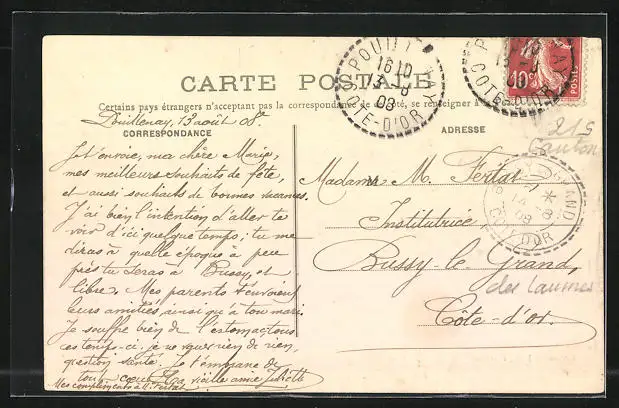 CARTE POSTALE
Certains pays étrangers n'acceptent pas la correspondance de ce côté, se renseigner à
CORRESPONDANCE
ADRESSE
POUILLENAY
16 10
13 -8
08
COTE-D'OR
10c
POSTES
COTE-D'OR
Pouillenay, 13 août 08.
Je t'envoie, ma chère Marie,
mes meilleurs souhaits de fête,
et aussi souhaits de bonnes vacances.
J'ai bien l'intention d'aller te
voir d'ici quelque temps; tu me
diras à quelle époque à peu
près tu seras à Bussy, et
libre. Mes parents t'envoient
leurs amitiés, ainsi qu'à ton mari.
Je souffre bien de l'estomac tous
ces temps-ci, je ne vaux rien de rien,
question santé. Je t'embrasse de
tout cœur. Ta vieille amie Juliette
Mes compliments à M. Fertat
Madame M. Fertat
Institutrice
Bussy-le-Grand,
des Laumes
Côte-d'Or.
215
Canton
GRAND
14 -8
08
COTE-D'OR